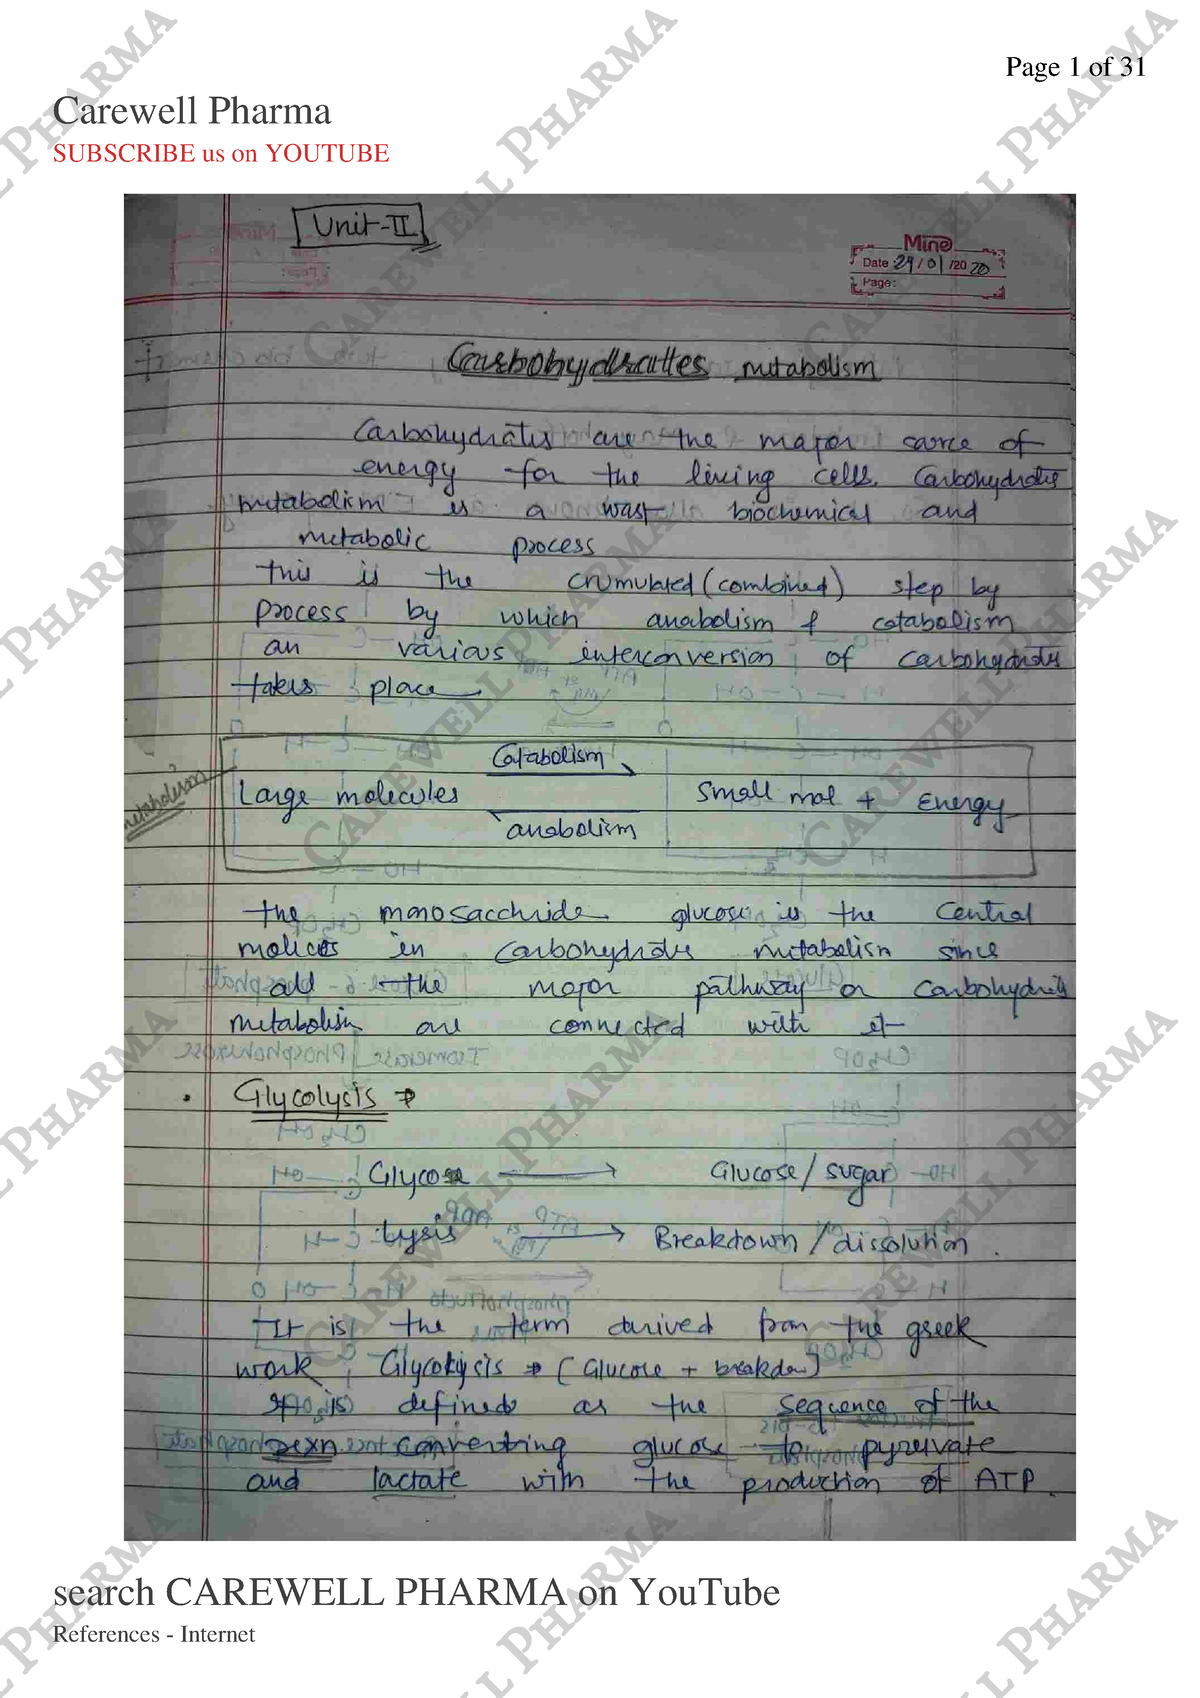 Page 1 of 31
Carewell Pharma
SUBSCRIBE us on YOUTUBE
Unit-II
Mine
Date 29/01/2020
Page:
Carbohydrates metabolism
Carbohydrates are the major sarce of
energy for the living cells. Carbohydrates
metabolism is a wast biochemical and
metabolic process
this is the crumulated (combined) step by
process by which anabolism & catabolism
an various interconversion of carbohydrates
takes place
Catabolism
metabolism
Large molecules
Small mol + Energy
anabolism
the monosacchride glucose is the central
in carbohydrates metabolism since
add the major pathway or carbohydrats
metabolism are connected with it
• Glycolysis ⇒
Glycose → Glucose / sugar
Lysis → Breakdown / dissolution.
It is the term derived from the greek
work, Glycolysis ⇒ (Glucose + breakdow)
It is defined as the sequence of the
rexn converting glucose to pyruvate
and lactate with the production of ATP.
search CAREWELL PHARMA on YouTube
References - Internet
CAREWELL PHARMA